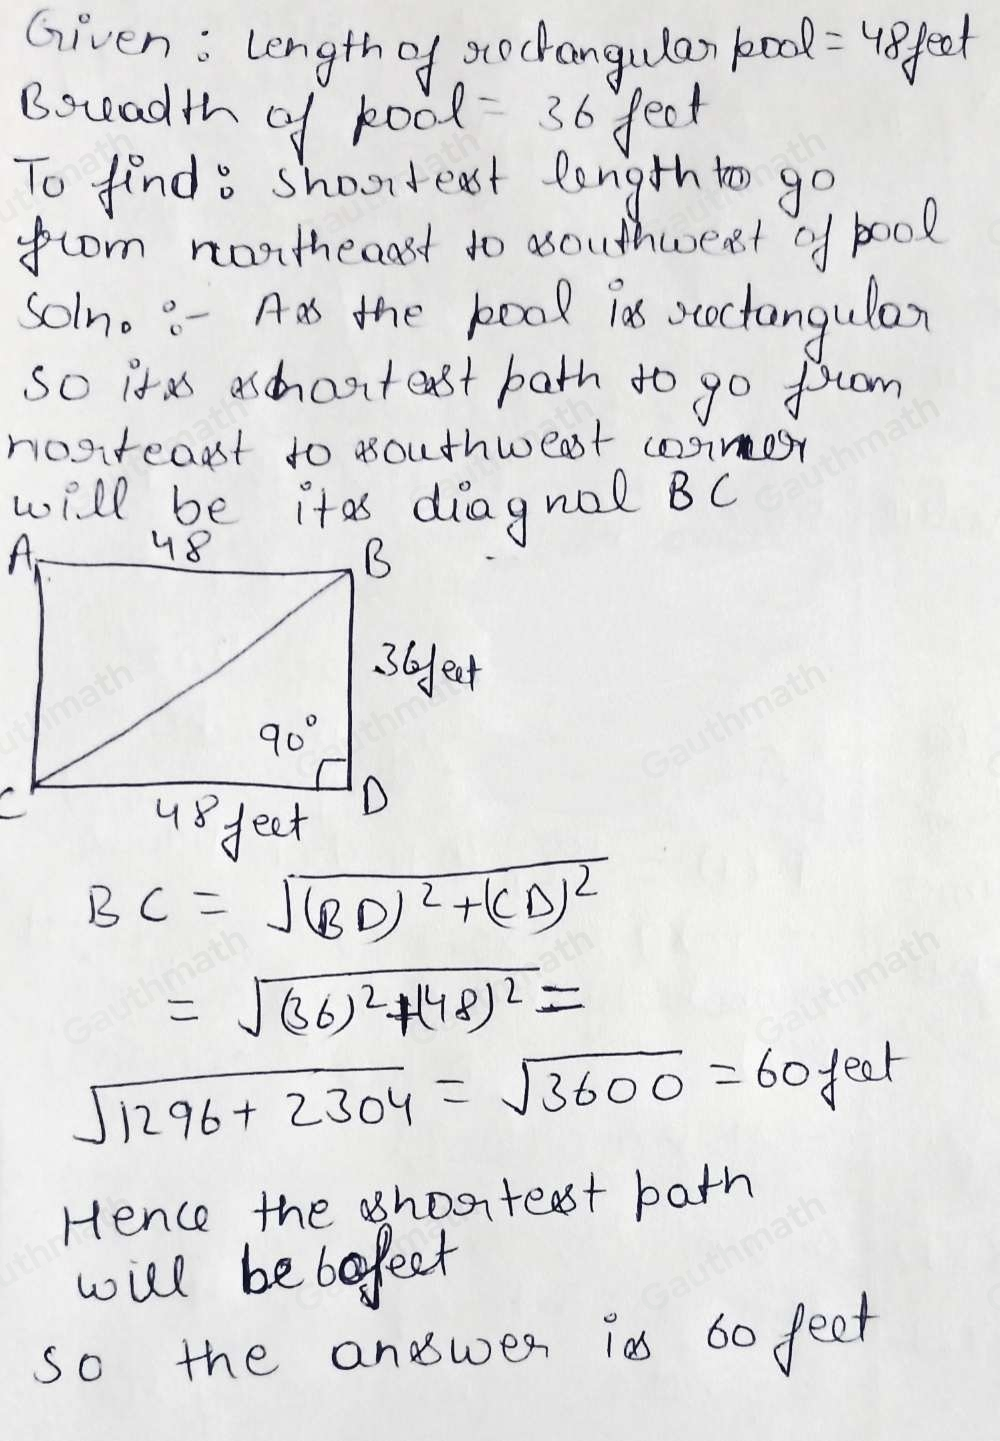 Given : Length of rectangular pool = 48 feet
Breadth of pool = 36 feet
To find : shortest length to go
from northeast to southwest of pool
Soln. :- As the pool is rectangular
so its shortest path to go from
norteast to southwest corner
will be its diagnal BC
A 48 B
36 feet
90°
C 48 feet D
BC = √(BD)² + (CD)²
= √(36)² + (48)² =
√1296 + 2304 = √3600 = 60 feet
Hence the shortest path
will be 60 feet
So the answer is 60 feet
Gauthmath